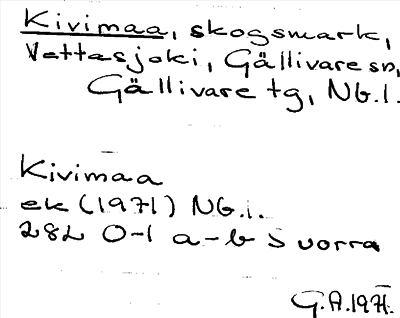 Kivimaa, skogsmark,
Vettasjoki, Gällivare sn,
Gällivare tg, Nb.l.
Kivimaa
ek (1971) Nb.l.
282 0-1 a-b S vorra
G.A.1971.